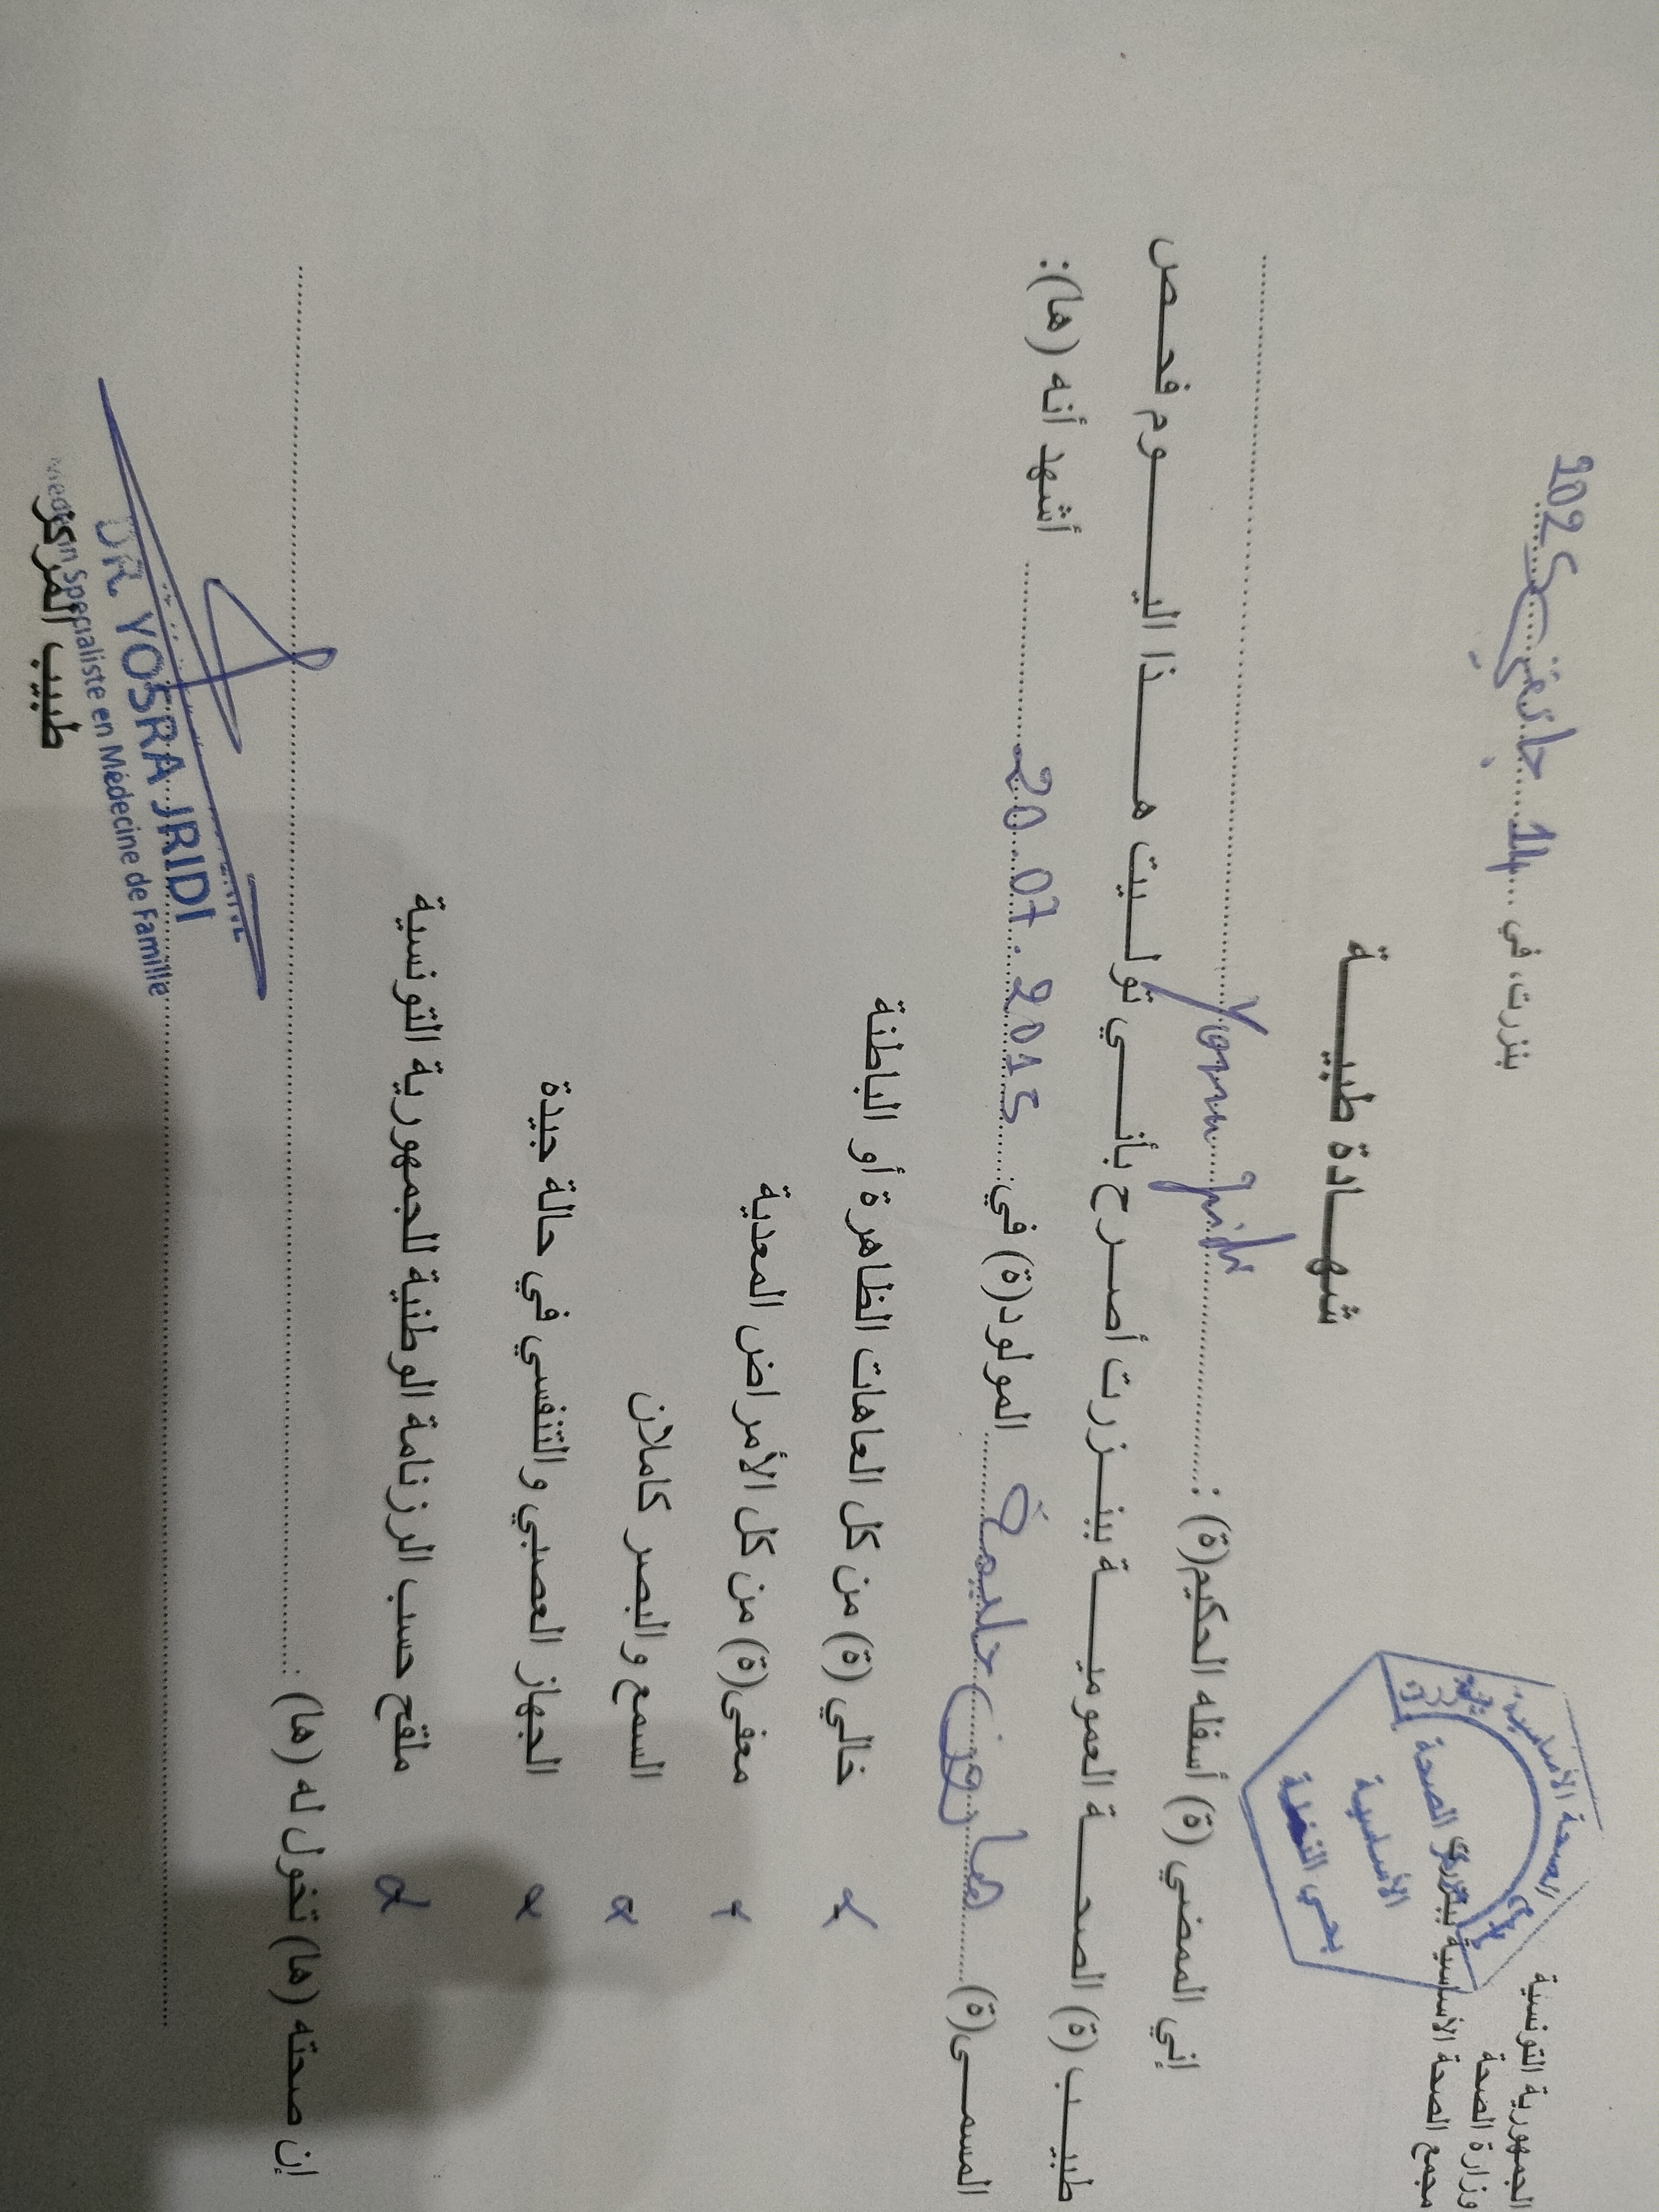 الجمهورية التونسية
وزارة الصحة
مجمع الصحة الأساسية ببنزرت
الصحة الأساسية
مركز الصحة
الأساسية
بحي النخلة
بنزرت، في 14 جانفي 2025
شهادة طبية
إني الممضي (ة) أسفله الحكيم(ة) : Yosra Jridi
طبيب (ة) الصحة العمومية ببنزرت أصرح بأنني توليت هذا اليوم فحص
المسمى(ة) حليمة المولود(ة) في: 20.07.2015 أشهد أنه (ها):
خالي (ة) من كل العاهات الظاهرة أو الباطنة
معفى(ة) من كل الأمراض المعدية
السمع والبصر كاملان
الجهاز العصبي والتنفسي في حالة جيدة
ملقح حسب الرزنامة الوطنية للجمهورية التونسية
إن صحته (ها) تخول له (ها):
DR. YOSRA JRIDI
Médecin Spécialiste en Médecine de Famille
طبيب المركز